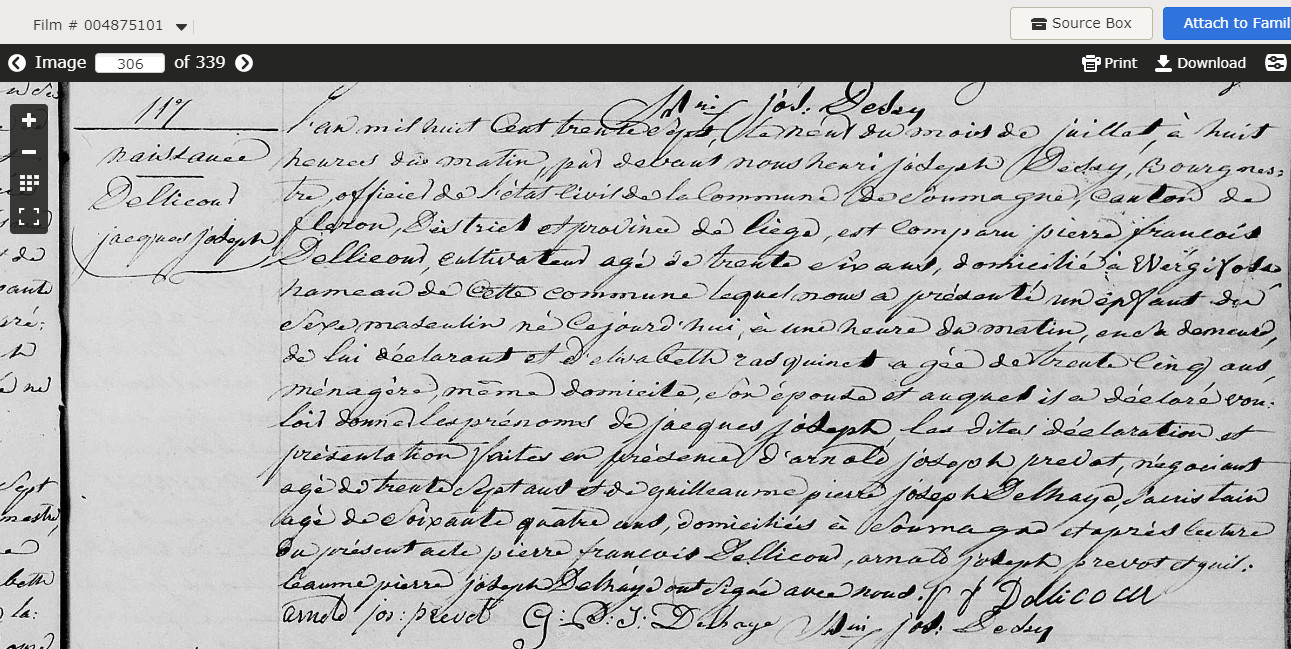 Film # 004875101
Source Box
Attach to Famil
Image 306 of 339
Print
Download
hri jos: Dessy
117
naissance
Dellicour
jacques joseph
L'an mil huit Cent trente sept, le neuf du mois de juillet, à huit
heures du matin, par devant nous henri joseph Dessy, Bourgmes-
tre, officier de l'état Civil de la Commune de Soumagne, Canton de
fleron, District et province de liége, est Comparu pierre francois
Dellicour, cultivateur agé de trente six ans, domicilié à
hameau de Cette commune lequel nous a présenté un enfant du
Sexe masculin né Cejourd'hui, à une heure du matin, en sa demeure,
de lui déclarant et d'elisabeth radquinet agée de trente Cinq ans,
ménagère, même domicile, son épouse et auquel il a déclaré vou:
loir donner les prénoms de jacques joseph les dites déclaration et
présentation faites en présence d'arnold joseph prevot, négociant
agé de trente sept ans et de guilleaume pierre joseph Delhaye, sacristain
agé de soixante quatre ans, domiciliés à Soumagne et après lecture
du présent acte pierre francois Dellicour, arnold joseph prevot et guil:
leaume pierre joseph Delhaye ont signé avec nous. p f Dellicour
arnold jos: prevot G: P: J: Delhaye hri jos: Dessy